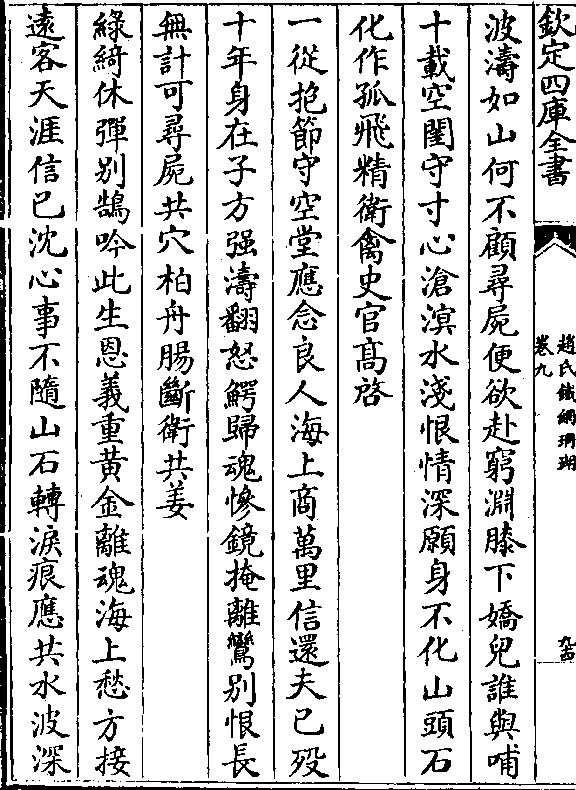 欽定四庫全書
趙氏鐵網珊瑚
卷九
九四
波濤如山何不顧尋屍便欲赴窮淵膝下嬌兒誰與哺
十載空閨守寸心滄溟水淺恨情深願身不化山頭石
化作孤飛精衛禽史官高啓
一從抱節守空堂應念良人海上商萬里信還夫已歿
十年身在子方强濤翻怒鰐歸魂慘鏡掩離鸞别恨長
無計可尋屍共穴柏舟腸斷衛共姜
綠綺休彈别鵠吟此生恩義重黃金離魂海上愁方接
遠客天涯信已沈心事不隨山石轉淚痕應共水波深